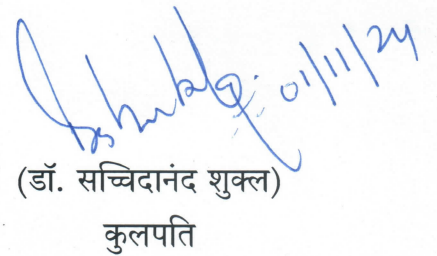 01/11/24
(डॉ. सच्चिदानंद शुक्ल)
कुलपति